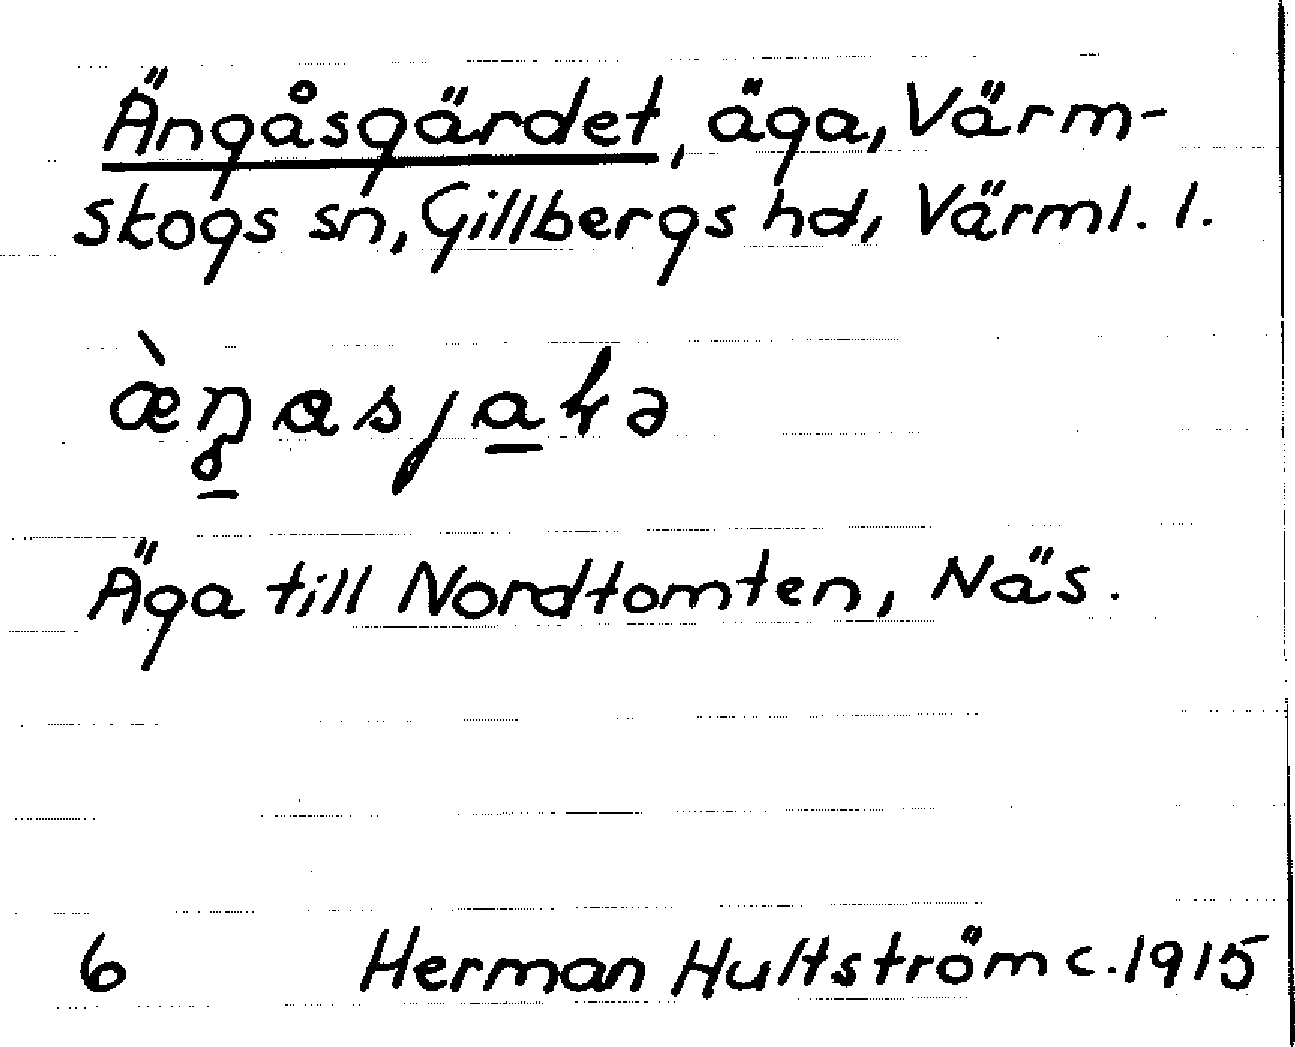 Ängåsgärdet, äga, Värm-
skogs sn, Gillbergs hd, Värml. l.
Äga till Nordtomten, Näs.
6 Herman Hultström c. 1915